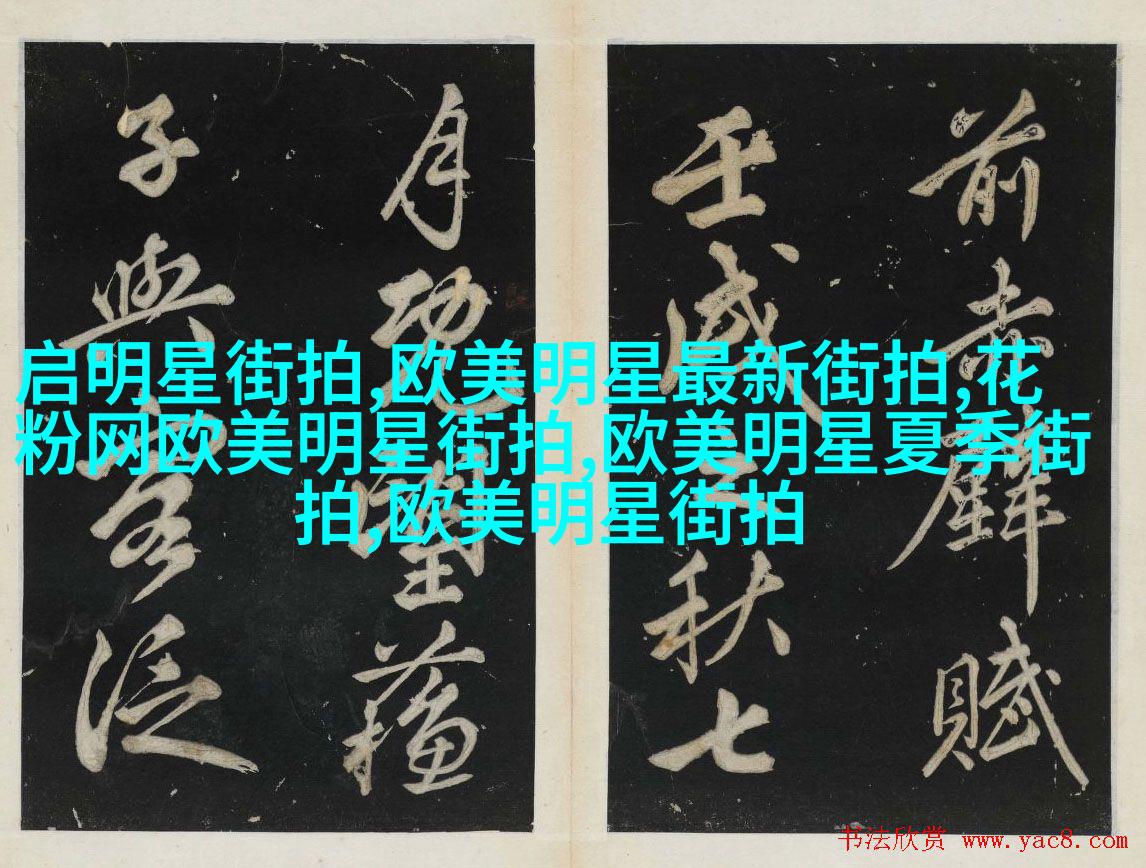 前赤壁賦
壬戌之秋七
月既望蘇
子與客泛
启明星街拍,欧美明星最新街拍,花
粉网欧美明星街拍,欧美明星夏季街
拍,欧美明星街拍
书法欣赏 www.yac8.com